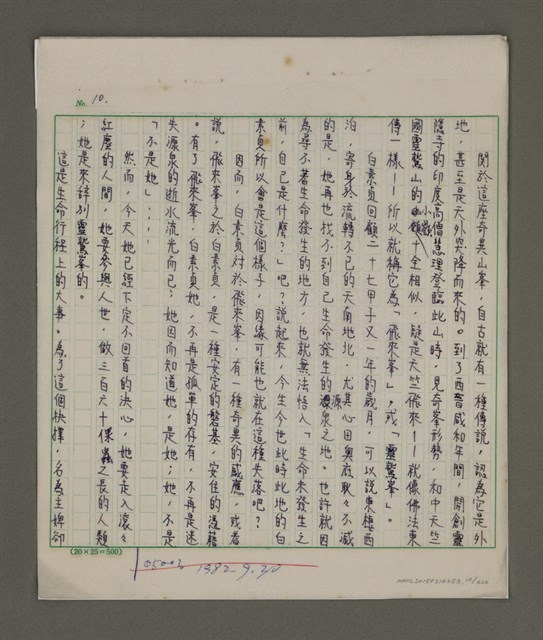 No. 10.
關於這座奇異山峯,自古就有一種傳說,認為它是外
地,甚至是天外突降而來的。到了西晉咸和年間,開創靈
隱寺的印度高僧慧理登臨此山時,見奇峯形勢,和中天竺
國靈鷲山的小嶺十全相似,疑是天竺飛來——就像佛法東
傳一樣——所以就稱它為「飛來峯」,或「靈鷲峯」。
白素貞回顧二十七甲子又一年的歲月,可以說東棲西
泊,寄身於流轉不已的天南地北,尤其心田奧底耿々不滅
的是,她再也找不到自己生命發生的源之地。也許就因
為尋不著生命發生的地方,也就無法悟入「生命未發生之
前,自己是什麼?」吧?說起來,今生今世此時此地的白
素貞所以會是這個樣子,因緣可能也就在這種失落吧?
因而,白素貞對於飛來峯,有一種奇異的感應,或者
說,飛來峯之於白素貞,是一種安定的磐基,安住的憑藉
。有了飛來峯,白素貞她,不再是孤單的存有,不再是迷
失源泉的逝水流光而已;她因而知道她,是她;她,不是
「不是她」....
然而,今天她已經下定不回首的決心,她要走入滾々
紅塵的人間,她要參與人世,做三百六十倮蟲之長的人類
;她是來辭別靈鷲峯的。
這是生命行程上的大事。為了這個抉擇,名為主婢卻
(20×25=500)
05003 1982.9.20